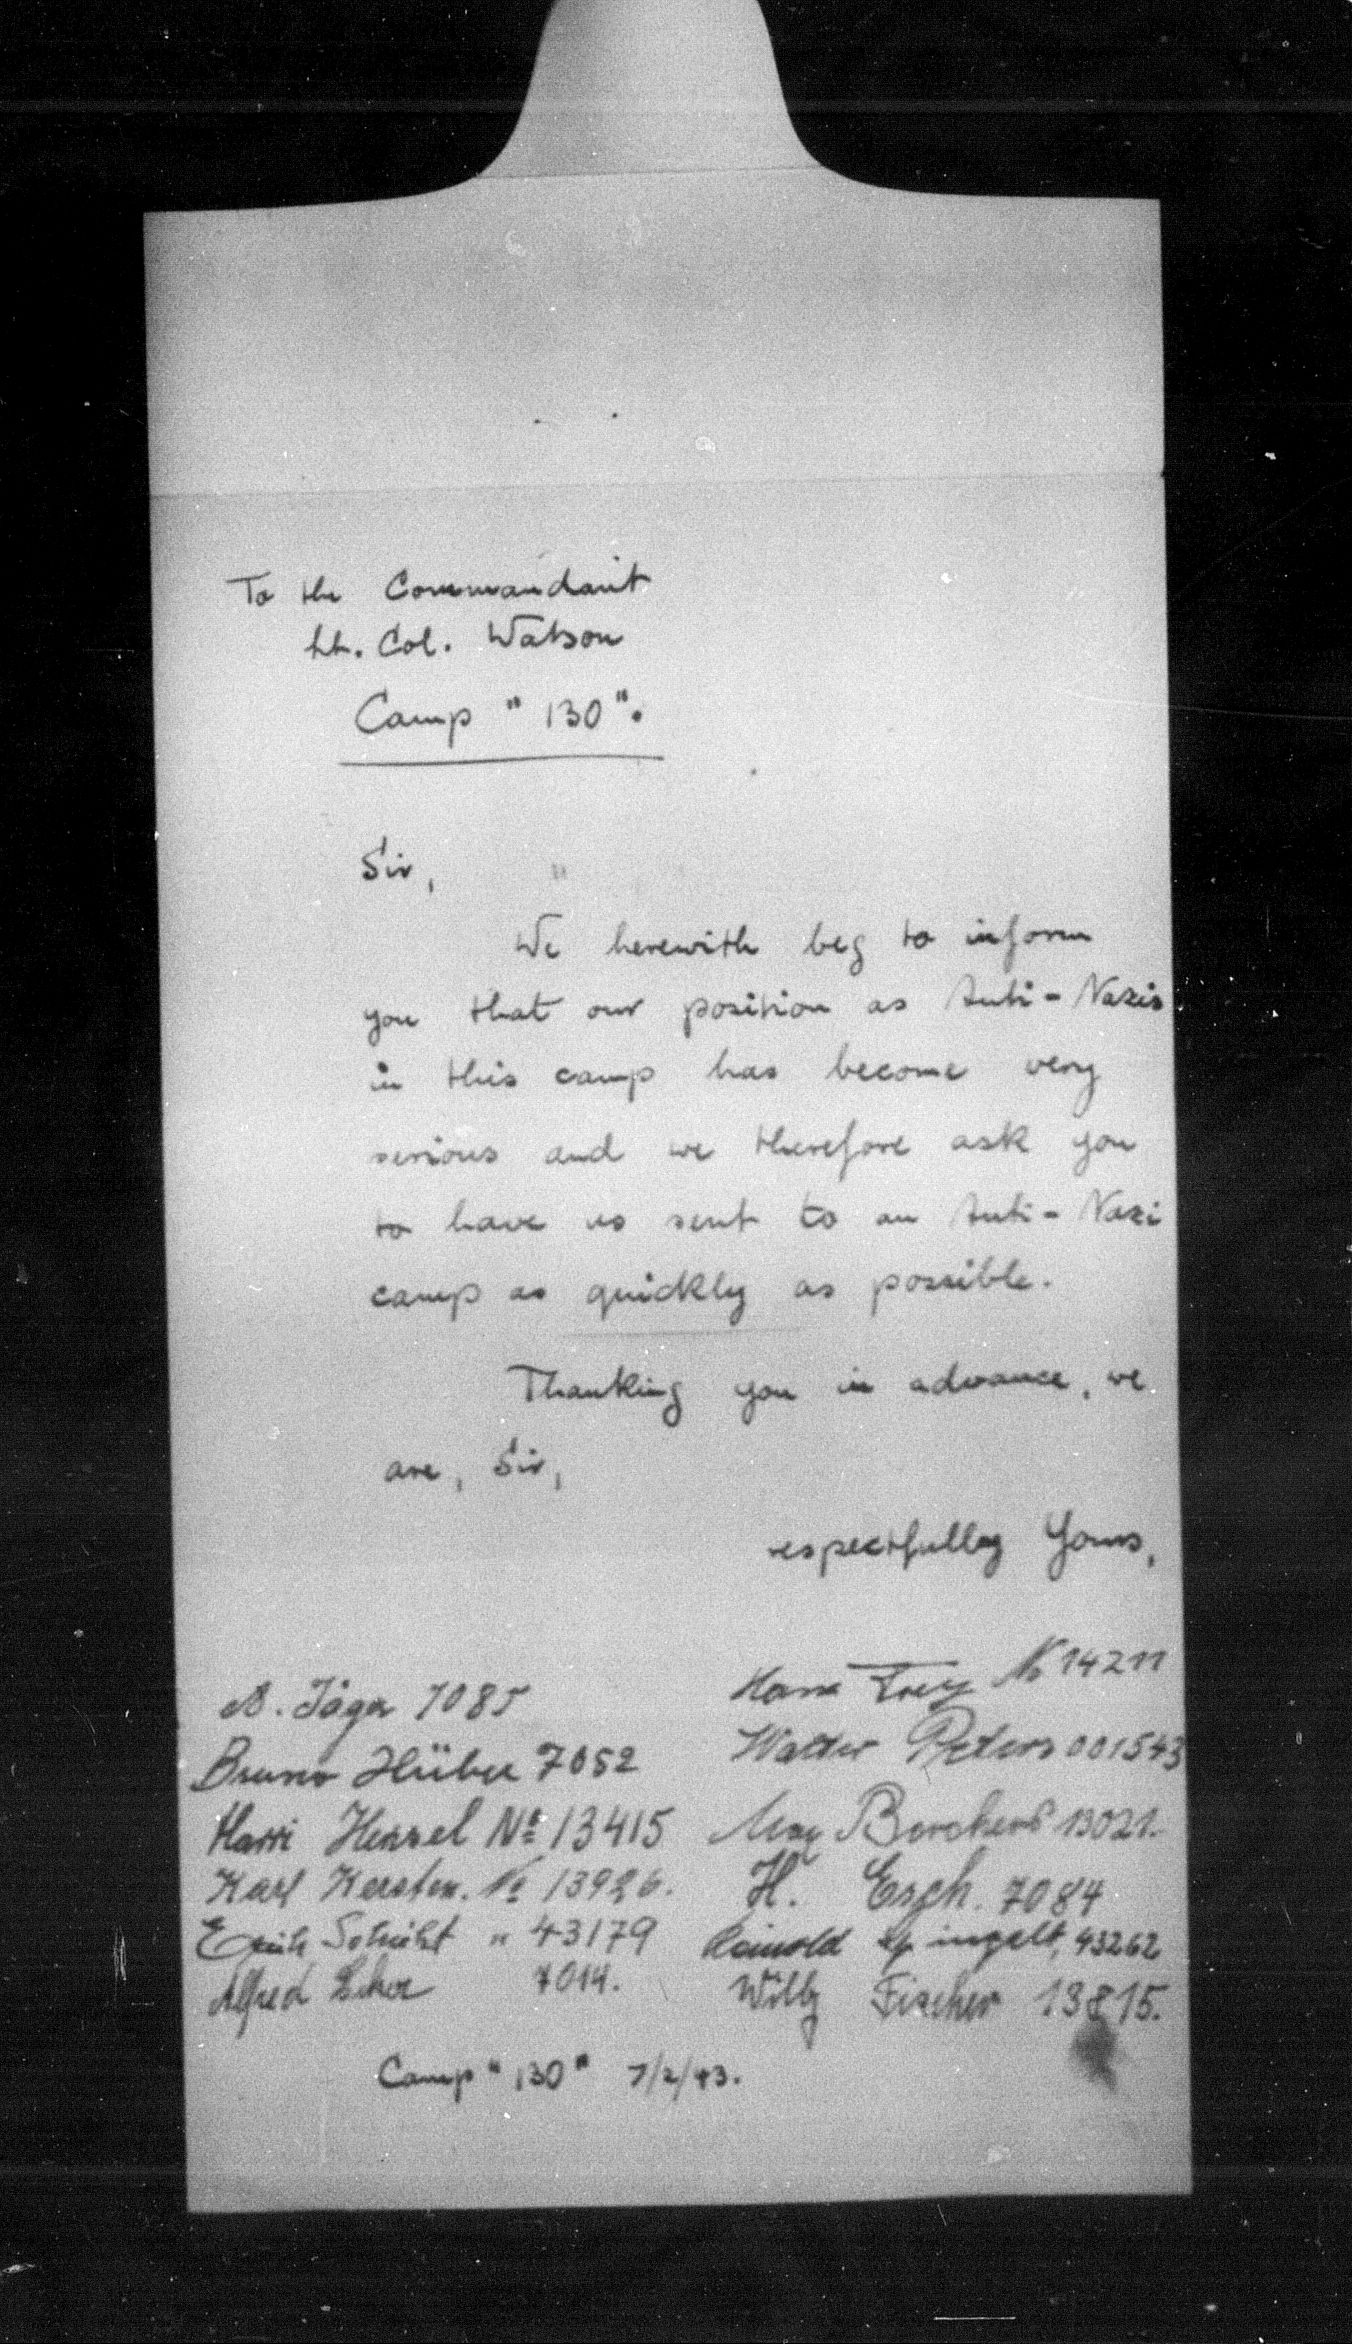 To the Commandant
Lt. Col. Watson
Camp " 130 ".
Sir,
We herewith beg to inform
you that our position as Anti-Nazis
in this camp has become very
serious and we therefore ask you
to have us sent to an Anti-Nazi
camp as quickly as possible.
Thanking you in advance, we
are, Sir,
respectfully Yours,
A. Jäger 7085
Bruno Hüber 7052
Harri Hensel No 13415
Karl Kersten. No 13926.
Erich " 43179
Alfred 7014.
Hans Frey No 14211
Walter Peters 001543
Max Borchers 13021.
H. Esch. 7084
Reinold 43262
Willy Fischer 13815.
Camp " 130 " 7/2/43.